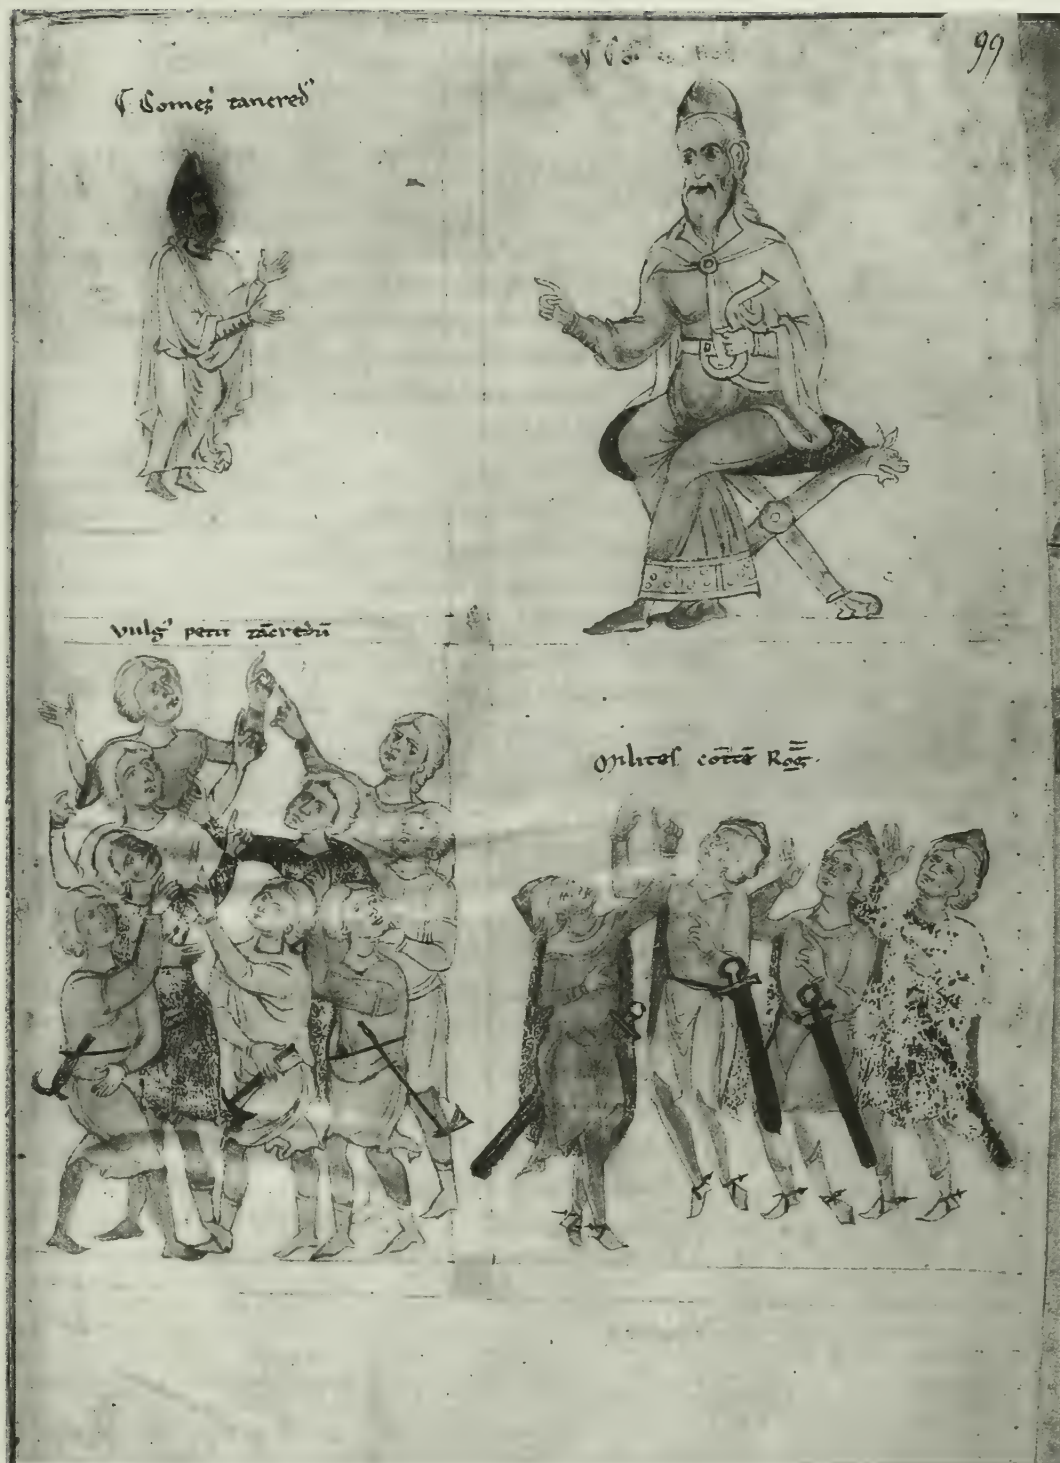 99
Comes tancred'
vulg' petit tācredū
Milites cōtē Rog̅